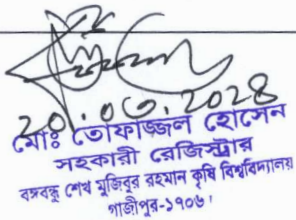 20.03.2024
মোঃ তোফাজ্জল হোসেন
সহকারী রেজিস্ট্রার
বঙ্গবন্ধু শেখ মুজিবুর রহমান কৃষি বিশ্ববিদ্যালয়
গাজীপুর-১৭০৬।